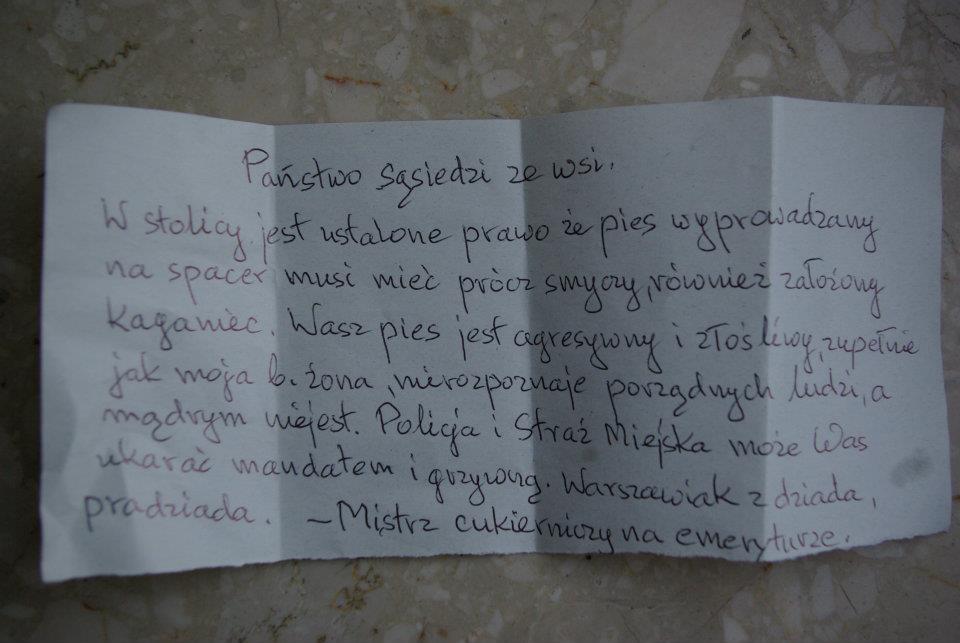 Państwo sąsiedzi ze wsi.
W stolicy jest ustalone prawo że pies wyprowadzany
na spacer musi mieć prócz smyczy, również założony
kaganiec. Wasz pies jest agresywny i złośliwy, zupełnie
jak moja b. żona, nierozpoznaje porządnych ludzi, a
mądrym niejest. Policja i Straż Miejska może Was
ukarać mandatem i grzywną. Warszawiak z dziada,
pradziada. – Mistrz cukierniczy na emeryturze.